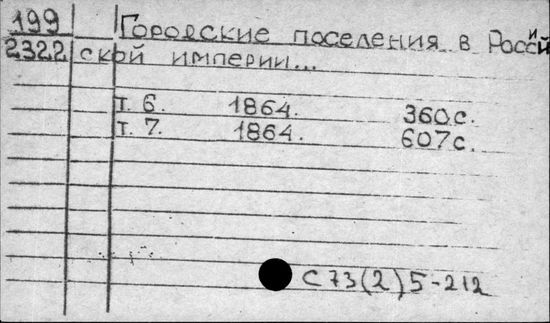 199 Городские поселения в Россий
2322 ской империи...
т. 6. 1864. 360с.
т. 7. 1864. 607с.
С 73(2)5-212